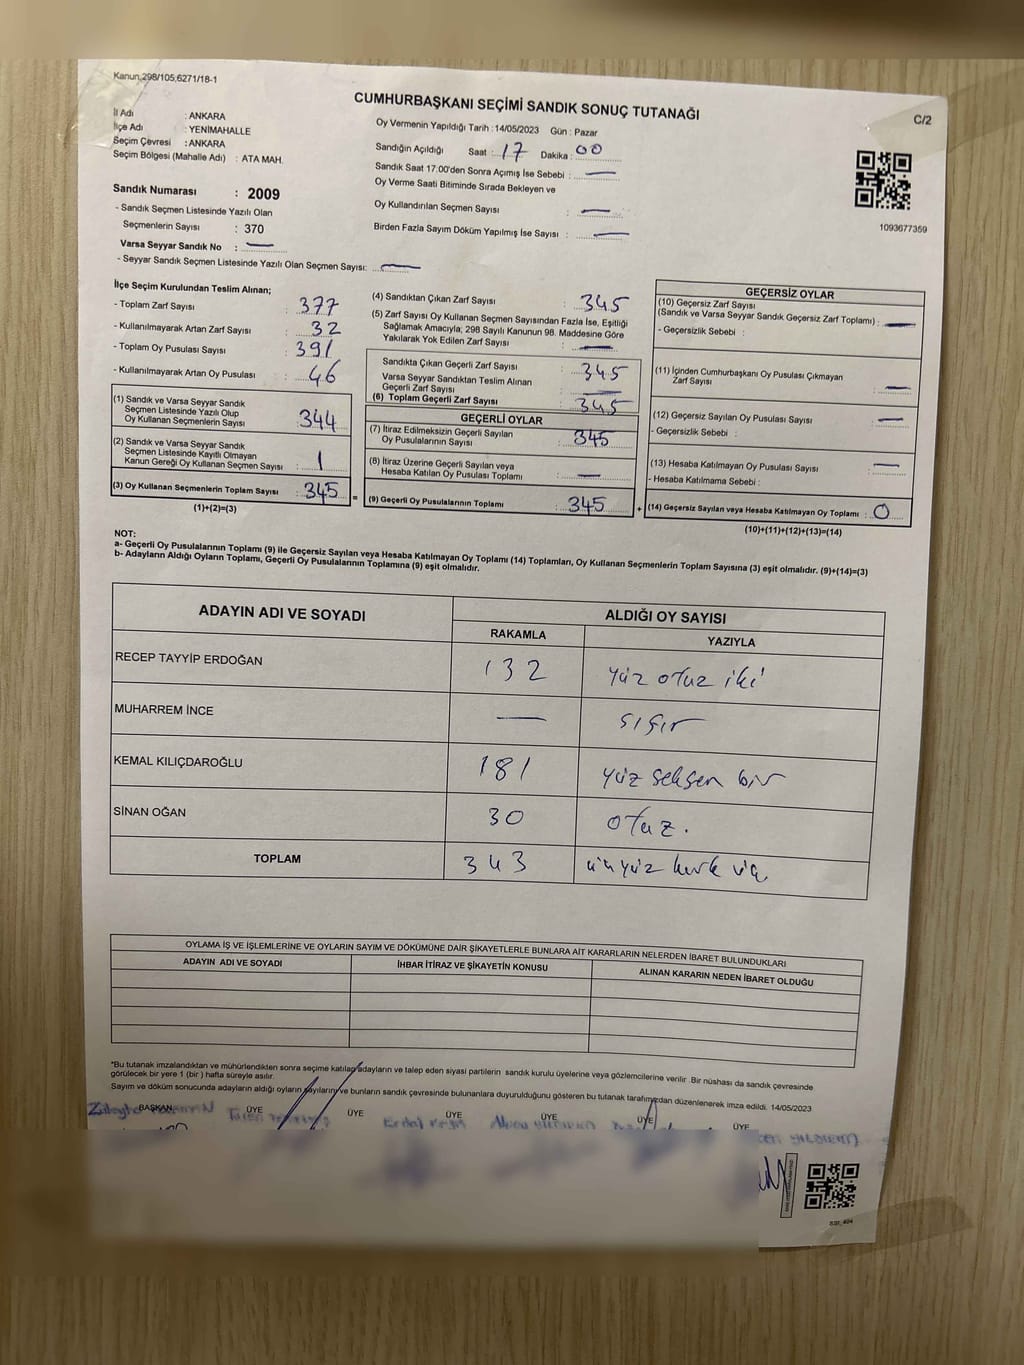 Kanun;298/105,6271/18-1
CUMHURBAŞKANI SEÇİMİ SANDIK SONUÇ TUTANAĞI
C/2
İl Adı : ANKARA
İlçe Adı : YENİMAHALLE
Seçim Çevresi : ANKARA
Seçim Bölgesi (Mahalle Adı) : ATA MAH.
Oy Vermenin Yapıldığı Tarih : 14/05/2023 Gün : Pazar
Sandığın Açıldığı Saat : 17 Dakika : 00
Sandık Saat 17:00'den Sonra Açımış İse Sebebi : —
Oy Verme Saati Bitiminde Sırada Bekleyen ve
Oy Kullandırılan Seçmen Sayısı : —
Birden Fazla Sayım Döküm Yapılmış İse Sayısı : —
1093677359
Sandık Numarası : 2009
- Sandık Seçmen Listesinde Yazılı Olan
Seçmenlerin Sayısı : 370
Varsa Seyyar Sandık No : —
- Seyyar Sandık Seçmen Listesinde Yazılı Olan Seçmen Sayısı: —
İlçe Seçim Kurulundan Teslim Alınan;
- Toplam Zarf Sayısı : 377
- Kullanılmayarak Artan Zarf Sayısı : 32
- Toplam Oy Pusulası Sayısı : 391
- Kullanılmayarak Artan Oy Pusulası : 46
(1) Sandık ve Varsa Seyyar Sandık
Seçmen Listesinde Yazılı Olup
Oy Kullanan Seçmenlerin Sayısı : 344
(2) Sandık ve Varsa Seyyar Sandık
Seçmen Listesinde Kayıtlı Olmayan
Kanun Gereği Oy Kullanan Seçmen Sayısı : 1
(3) Oy Kullanan Seçmenlerin Toplam Sayısı : 345
(1)+(2)=(3)
=
(4) Sandıktan Çıkan Zarf Sayısı : 345
(5) Zarf Sayısı Oy Kullanan Seçmen Sayısından Fazla İse, Eşitliği
Sağlamak Amacıyla; 298 Sayılı Kanunun 98. Maddesine Göre
Yakılarak Yok Edilen Zarf Sayısı : —
Sandıkta Çıkan Geçerli Zarf Sayısı : 345
Varsa Seyyar Sandıktan Teslim Alınan
Geçerli Zarf Sayısı : —
(6) Toplam Geçerli Zarf Sayısı : 345
GEÇERLİ OYLAR
(7) İtiraz Edilmeksizin Geçerli Sayılan
Oy Pusulalarının Sayısı : 345
(8) İtiraz Üzerine Geçerli Sayılan veya
Hesaba Katılan Oy Pusulası Toplamı : —
(9) Geçerli Oy Pusulalarının Toplamı : 345
+
GEÇERSİZ OYLAR
(10) Geçersiz Zarf Sayısı
(Sandık ve Varsa Seyyar Sandık Geçersiz Zarf Toplamı) : —
- Geçersizlik Sebebi :
(11) İçinden Cumhurbaşkanı Oy Pusulası Çıkmayan
Zarf Sayısı : —
(12) Geçersiz Sayılan Oy Pusulası Sayısı : —
- Geçersizlik Sebebi :
(13) Hesaba Katılmayan Oy Pusulası Sayısı : —
- Hesaba Katılmama Sebebi :
(14) Geçersiz Sayılan veya Hesaba Katılmayan Oy Toplamı : 0
(10)+(11)+(12)+(13)=(14)
NOT:
a- Geçerli Oy Pusulalarının Toplamı (9) ile Geçersiz Sayılan veya Hesaba Katılmayan Oy Toplamı (14) Toplamları, Oy Kullanan Seçmenlerin Toplam Sayısına (3) eşit olmalıdır. (9)+(14)=(3)
b- Adayların Aldığı Oyların Toplamı, Geçerli Oy Pusulalarının Toplamına (9) eşit olmalıdır.
ADAYIN ADI VE SOYADI
ALDIĞI OY SAYISI
RAKAMLA YAZIYLA
RECEP TAYYİP ERDOĞAN 132 yüz otuz iki
MUHARREM İNCE — sıfır
KEMAL KILIÇDAROĞLU 181 yüz seksen bir
SİNAN OĞAN 30 otuz.
TOPLAM 343 üçyüz kırk üç
OYLAMA İŞ VE İŞLEMLERİNE VE OYLARIN SAYIM VE DÖKÜMÜNE DAİR ŞİKAYETLERLE BUNLARA AİT KARARLARIN NELERDEN İBARET BULUNDUKLARI
ADAYIN ADI VE SOYADI İHBAR İTİRAZ VE ŞİKAYETİN KONUSU ALINAN KARARIN NEDEN İBARET OLDUĞU
*Bu tutanak imzalandıktan ve mühürlendikten sonra seçime katılan adayların ve talep eden siyasi partilerin sandık kurulu üyelerine veya gözlemcilerine verilir .Bir nüshası da sandık çevresinde
görülecek bir yere 1 (bir ) hafta süreyle asılır.
Sayım ve döküm sonucunda adayların aldığı oyların sayılarını ve bunların sandık çevresinde bulunanlara duyurulduğunu gösteren bu tutanak tarafımızdan düzenlenerek imza edildi. 14/05/2023
BAŞKAN ÜYE ÜYE ÜYE ÜYE ÜYE ÜYE